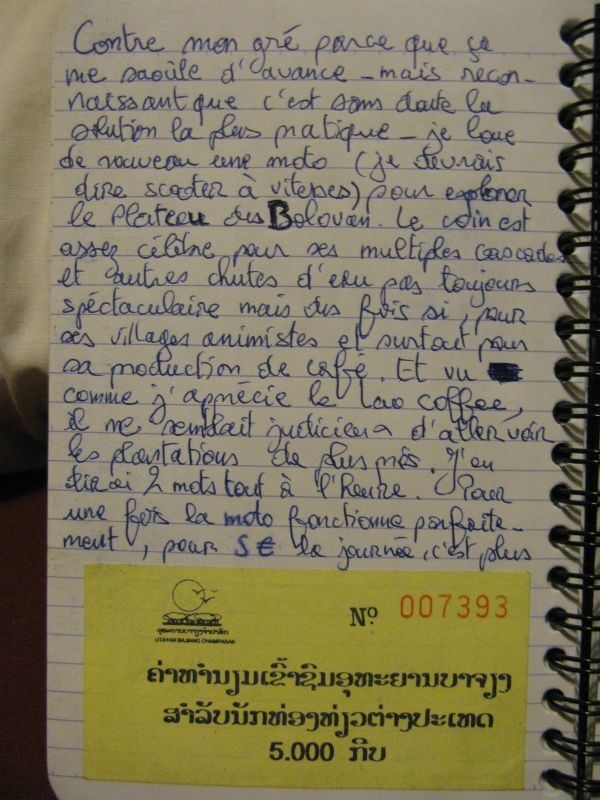 Contre mon gré parce que ça
me saoûle d'avance _ mais recon_
naissant que c'est sans doute la
solution la plus pratique _ je loue
de nouveau une moto (je devrais
dire scooter à vitesses) pour explorer
le Plateau des Bolovan. Le coin est
assez célèbre pour ses multiples cascades
et autres chutes d'eau pas toujours
spéctaculaire mais des fois si, pour
ses villages animistes et surtout pour
sa production de caffé. Et vu
comme j'apprécie le Lao coffee,
il me semblait judicieux d'aller voir
les plantations de plus près. J'en
dirai 2 mots tout à l'heure. Pour
une fois la moto fonctionne parfaite_
ment, pour 5€ la journée, c'est plus
ອຸທະຍານບາຈຽງຈຳປາສັກ
UTAYAN BAJIANG CHAMPASAK
Nº 007393
ຄ່າທຳນຽມເຂົ້າຊົມອຸທະຍານບາຈຽງ
ສຳລັບນັກທ່ອງທ່ຽວຕ່າງປະເທດ
5.000 ກີບ